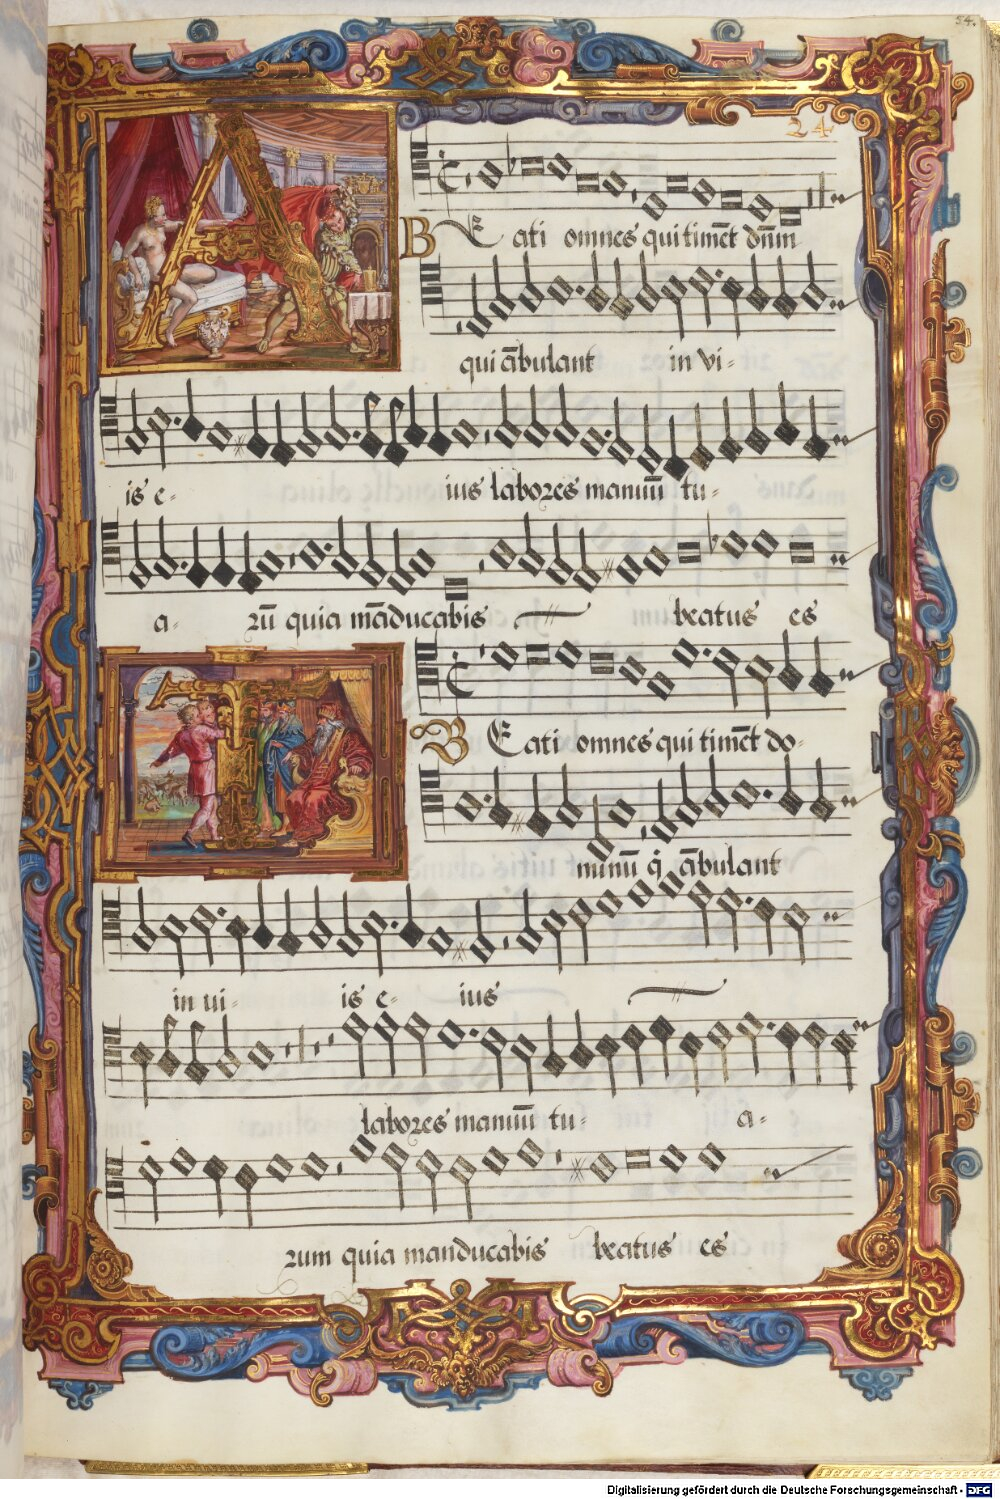 54.
24
A
BEati omnes qui timēt dn̄m
qui ābulant in vi-
is e- ius labores manuū tu-
a- rū quia māducabis beatus es
T
BEati omnes qui timēt do-
minū q̄ ābulant
in ui- is e- ius
labores manuū tu- a-
rum quia manducabis beatus es
Digitalisierung gefördert durch die Deutsche Forschungsgemeinschaft - DFG